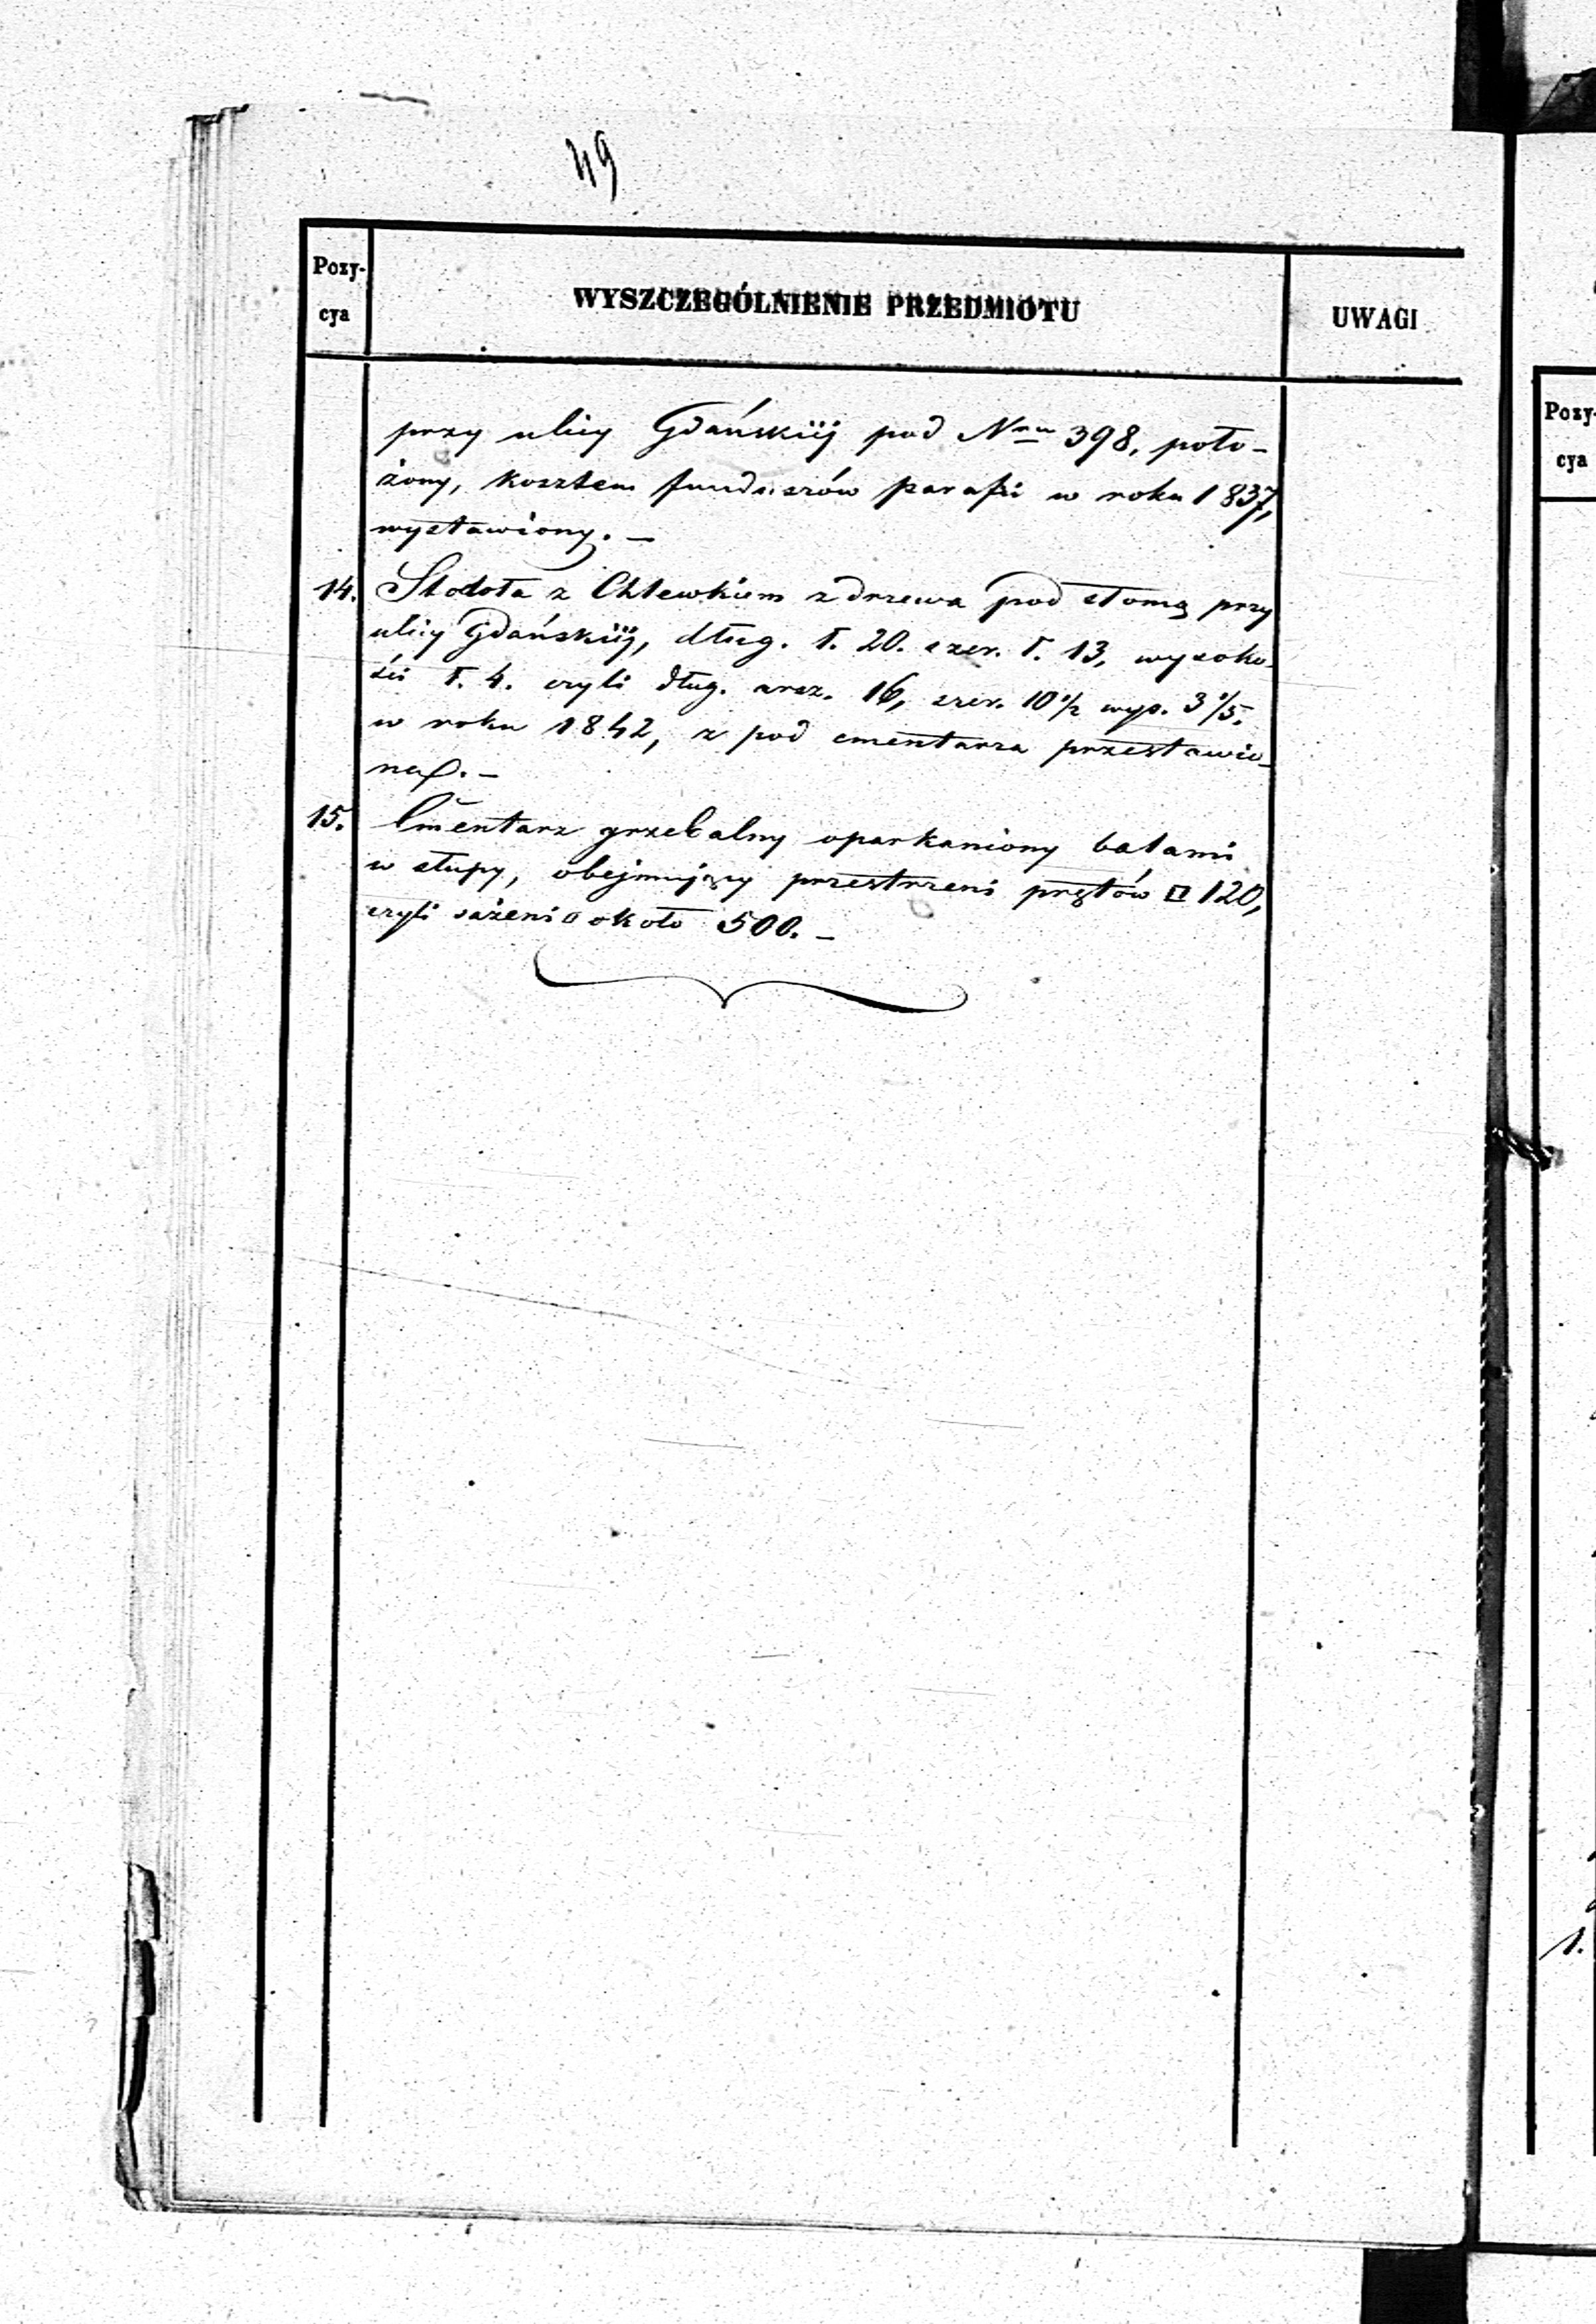 49
Pozy-
cya
WYSZCZEGÓLNIENIE PRZEDMIOTU
UWAGI
przy ulicy Gdańskiéj pod Nrm 398, poło-
żony, kosztem funduszów parafii w roku 1837,
wystawiony. —
14. Stodoła z Chlewkiem z drzewa pod słomą przy
ulicy Gdańskiéj, dług. ł. 20. szer. ł. 13, wysoko-
ści ł. 4. czyli dług. arsz. 16, szer. 10 1/2 wys. 3 1/5.
w roku 1842, z pod cmentarza przestawio-
na. —
15. Cmentarz grzebalny oparkaniony balami
w słupy, obejmujący przestrzeni prętów □ 120,
czyli sażeni □ około 500. —
Pozy-
cya
1.